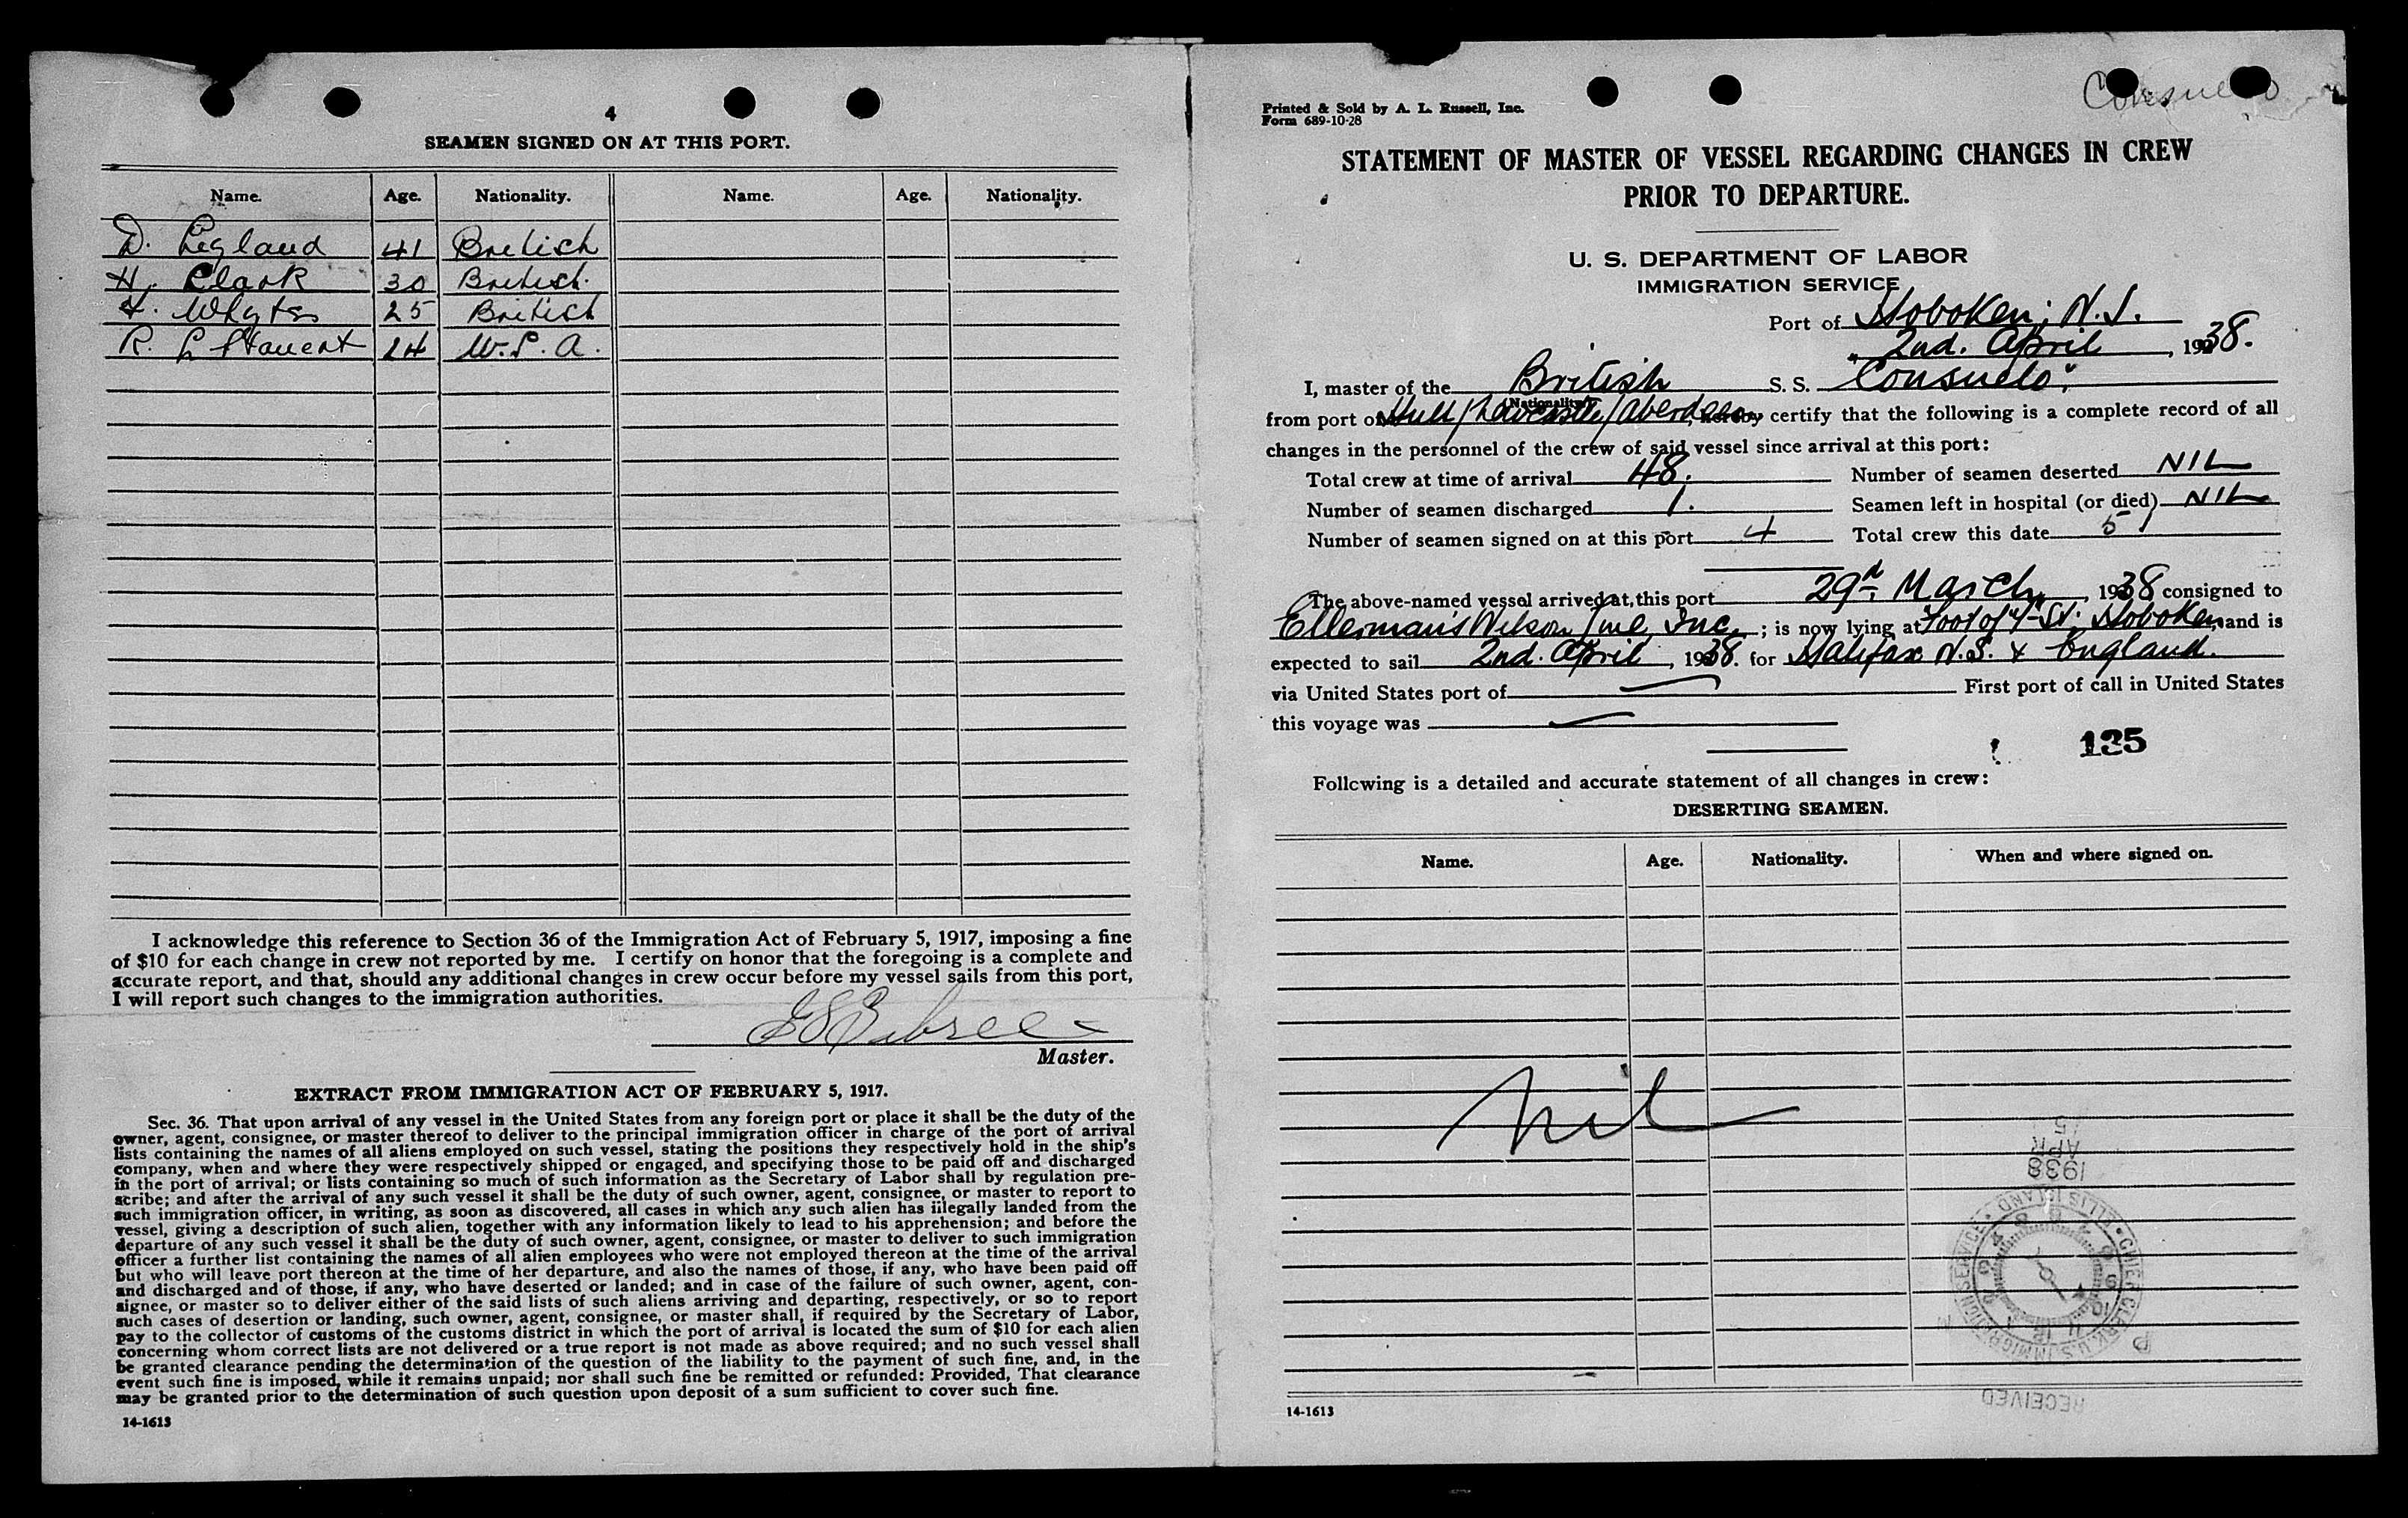 4
SEAMEN SIGNED ON AT THIS PORT.
Name. Age. Nationality. Name. Age. Nationality.
D. 41 British
H. Clark 30 British.
25 British
R. 24 U.S.A.
I acknowledge this reference to Section 36 of the Immigration Act of February 5, 1917, imposing a fine
of $10 for each change in crew not reported by me. I certify on honor that the foregoing is a complete and
accurate report, and that, should any additional changes in crew occur before my vessel sails from this port,
I will report such changes to the immigration authorities.
Master.
EXTRACT FROM IMMIGRATION ACT OF FEBRUARY 5, 1917.
Sec. 36. That upon arrival of any vessel in the United States from any foreign port or place it shall be the duty of the
owner, agent, consignee, or master thereof to deliver to the principal immigration officer in charge of the port of arrival
lists containing the names of all aliens employed on such vessel, stating the positions they respectively hold in the ship's
company, when and where they were respectively shipped or engaged, and specifying those to be paid off and discharged
in the port of arrival; or lists containing so much of such information as the Secretary of Labor shall by regulation pre-
scribe; and after the arrival of any such vessel it shall be the duty of such owner, agent, consignee, or master to report to
such immigration officer, in writing, as soon as discovered, all cases in which any such alien has illegally landed from the
vessel, giving a description of such alien, together with any information likely to lead to his apprehension; and before the
departure of any such vessel it shall be the duty of such owner, agent, consignee, or master to deliver to such immigration
officer a further list containing the names of all alien employees who were not employed thereon at the time of the arrival
but who will leave port thereon at the time of her departure, and also the names of those, if any, who have been paid off
and discharged and of those, if any, who have deserted or landed; and in case of the failure of such owner, agent, con-
signee, or master so to deliver either of the said lists of such aliens arriving and departing, respectively, or so to report
such cases of desertion or landing, such owner, agent, consignee, or master shall, if required by the Secretary of Labor,
pay to the collector of customs of the customs district in which the port of arrival is located the sum of $10 for each alien
concerning whom correct lists are not delivered or a true report is not made as above required; and no such vessel shall
be granted clearance pending the determination of the question of the liability to the payment of such fine, and, in the
event such fine is imposed, while it remains unpaid; nor shall such fine be remitted or refunded: Provided, That clearance
may be granted prior to the determination of such question upon deposit of a sum sufficient to cover such fine.
14-1613
Consuelo
Printed & Sold by A. L. Russell, Inc.
Form 689-10-28
STATEMENT OF MASTER OF VESSEL REGARDING CHANGES IN CREW
PRIOR TO DEPARTURE.
U. S. DEPARTMENT OF LABOR
IMMIGRATION SERVICE
Port of Hoboken, N.J.
2nd. April, 1938.
I, master of the British S. S. "Consuelo".
(Nationality)
from port of Hull/Newcastle/Aberdeen, hereby certify that the following is a complete record of all
changes in the personnel of the crew of said vessel since arrival at this port:
Total crew at time of arrival 48. Number of seamen deserted NIL
Number of seamen discharged 1. Seamen left in hospital (or died) NIL
Number of seamen signed on at this port 4 Total crew this date 51
The above-named vessel arrived at this port 29 March, 1938 consigned to
Ellerman's Wilson Line Inc.; is now lying at foot of St. Hoboken and is
expected to sail 2nd. April, 1938. for Halifax N.S. & England.
via United States port of First port of call in United States
this voyage was
135
Following is a detailed and accurate statement of all changes in crew:
DESERTING SEAMEN.
Name. Age. Nationality. When and where signed on.
nil
RECEIVED
CHIEF CLERK, U.S. IMMIGRATION SERVICE • ELLIS ISLAND •
1938
APR
5
14-1613